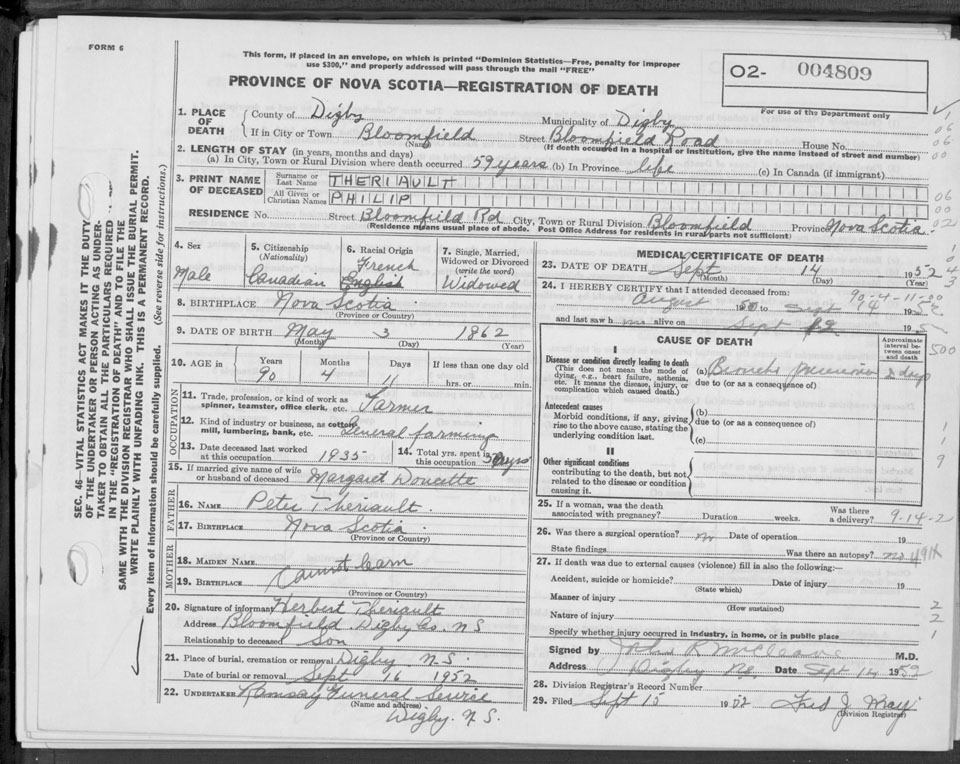 FORM 6
This form, if placed in an envelope, on which is printed "Dominion Statistics—Free, penalty for improper
use $300," and properly addressed will pass through the mail "FREE"
PROVINCE OF NOVA SCOTIA—REGISTRATION OF DEATH
O2- 004809
For use of the Department only
1. PLACE OF DEATH
County of Digby Municipality of Digby
If in City or Town Bloomfield Street Bloomfield Road House No.
(Name) (If death occurred in a hospital or institution, give the name instead of street and number)
2. LENGTH OF STAY (in years, months and days)
(a) In City, Town or Rural Division where death occurred 59 years (b) In Province life (c) In Canada (if immigrant)
3. PRINT NAME OF DECEASED
Surname or Last Name THERIAULT
All Given or Christian Names PHILIP
RESIDENCE No. Street Bloomfield Rd City, Town or Rural Division Bloomfield Province Nova Scotia
(Residence means usual place of abode. Post Office Address for residents in rural parts not sufficient)
4. Sex 5. Citizenship (Nationality) 6. Racial Origin 7. Single, Married, Widowed or Divorced (write the word)
French
Male Canadian English Widowed
8. BIRTHPLACE Nova Scotia
(Province or Country)
9. DATE OF BIRTH May 3 1862
(Month) (Day) (Year)
10. AGE in Years Months Days If less than one day old
90 4 11 hrs. or min.
OCCUPATION
11. Trade, profession, or kind of work as
spinner, teamster, office clerk, etc. Farmer
12. Kind of industry or business, as cotton
mill, lumbering, bank, etc. General farming
13. Date deceased last worked
at this occupation 1935
14. Total yrs. spent in
this occupation 50 yrs
15. If married give name of wife
or husband of deceased Margaret Doucette
FATHER
16. NAME Peter Theriault
17. BIRTHPLACE Nova Scotia
(Province or Country)
MOTHER
18. MAIDEN NAME
Cannot learn
19. BIRTHPLACE
(Province or Country)
20. Signature of informant Herbert Theriault
Address Bloomfield Digby Co. N S
Relationship to deceased Son
21. Place of burial, cremation or removal Digby N.S.
Date of burial or removal Sept 16 1952
22. UNDERTAKER Ramsay Funeral Service
(Name and address)
Digby. N S.
MEDICAL CERTIFICATE OF DEATH
23. DATE OF DEATH Sept 14 1952
(Month) (Day) (Year)
24. I HEREBY CERTIFY that I attended deceased from:
90-4-11-00
August Sept 14 1952
and last saw h alive on Sept 195
CAUSE OF DEATH
Approximate interval between onset and death
I
Disease or condition directly leading to death
(This does not mean the mode of
dying, e.g., heart failure, asthenia,
etc. It means the disease, injury, or
complication which caused death.)
(a) Broncho pneumonia 2 days
due to (or as a consequence of)
Antecedent causes
Morbid conditions, if any, giving
rise to the above cause, stating the
underlying condition last.
(b)
due to (or as a consequence of)
(c)
II
Other significant conditions
contributing to the death, but not
related to the disease or condition
causing it.
25. If a woman, was the death
associated with pregnancy? Duration weeks. Was there a delivery? 9-14-2
26. Was there a surgical operation? no Date of operation 19
State findings Was there an autopsy? no 491X
27. If death was due to external causes (violence) fill in also the following:—
Accident, suicide or homicide? Date of injury 19
(State which)
Manner of injury
(How sustained)
Nature of injury
Specify whether injury occurred in industry, in home, or in public place
Signed by John R McCleave M.D.
Address Digby NS Date Sept 14 1952
28. Division Registrar's Record Number
29. Filed Sept 15 1952 Fred J. May
(Division Registrar)
SEC. 46—VITAL STATISTICS ACT MAKES IT THE DUTY
OF THE UNDERTAKER OR PERSON ACTING AS UNDER-
TAKER TO OBTAIN ALL THE PARTICULARS REQUIRED
IN THE "REGISTRATION OF DEATH" AND TO FILE THE
SAME WITH THE DIVISION REGISTRAR WHO SHALL ISSUE THE BURIAL PERMIT.
WRITE PLAINLY WITH UNFADING INK. THIS IS A PERMANENT RECORD.
Every item of information should be carefully supplied. (See reverse side for instructions.)
1
06
06
00
06
00
02
0
4
3
500
1
1
9
2
2
1